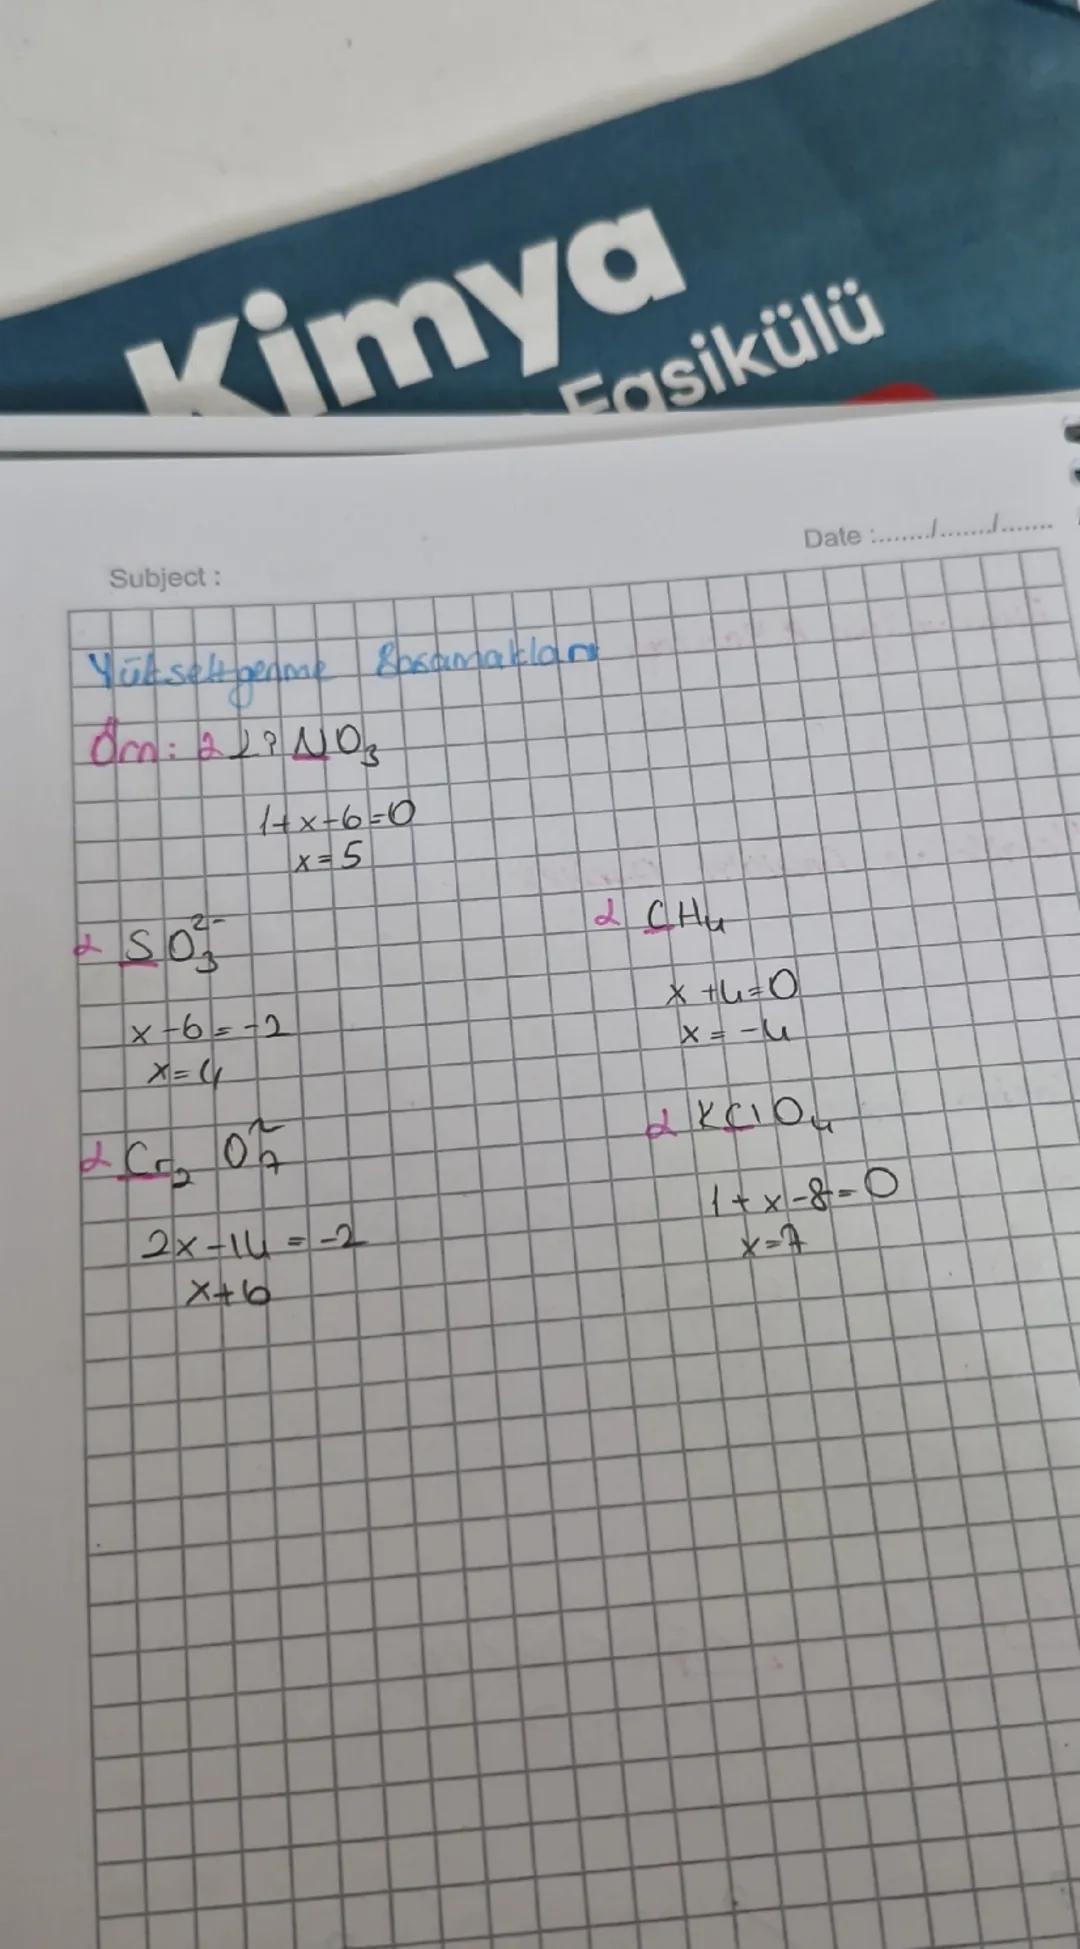 Kimya
Fasikülü
Date :......../......../........
Subject :
Yükseltgenme Basamakları
Örn: NO₃
1+x-6=0
x=5
SO₃²⁻
x-6=-2
x=4
CH₄
x+4=0
x=-4
Cr₂ O₇²⁻
2x-14=-2
x+6
KClO₄
1+x-8=0
x=7